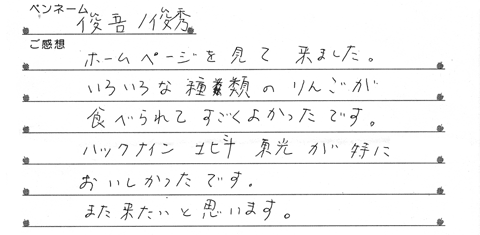 ペンネーム 俊吾/俊秀
ご感想
ホームページを見て 来ました。
いろいろな種類の りんごが
食べられて すごくよかったです。
ハックナイン 北斗 東光 が 特に
おいしかったです。
また来たいと思います。